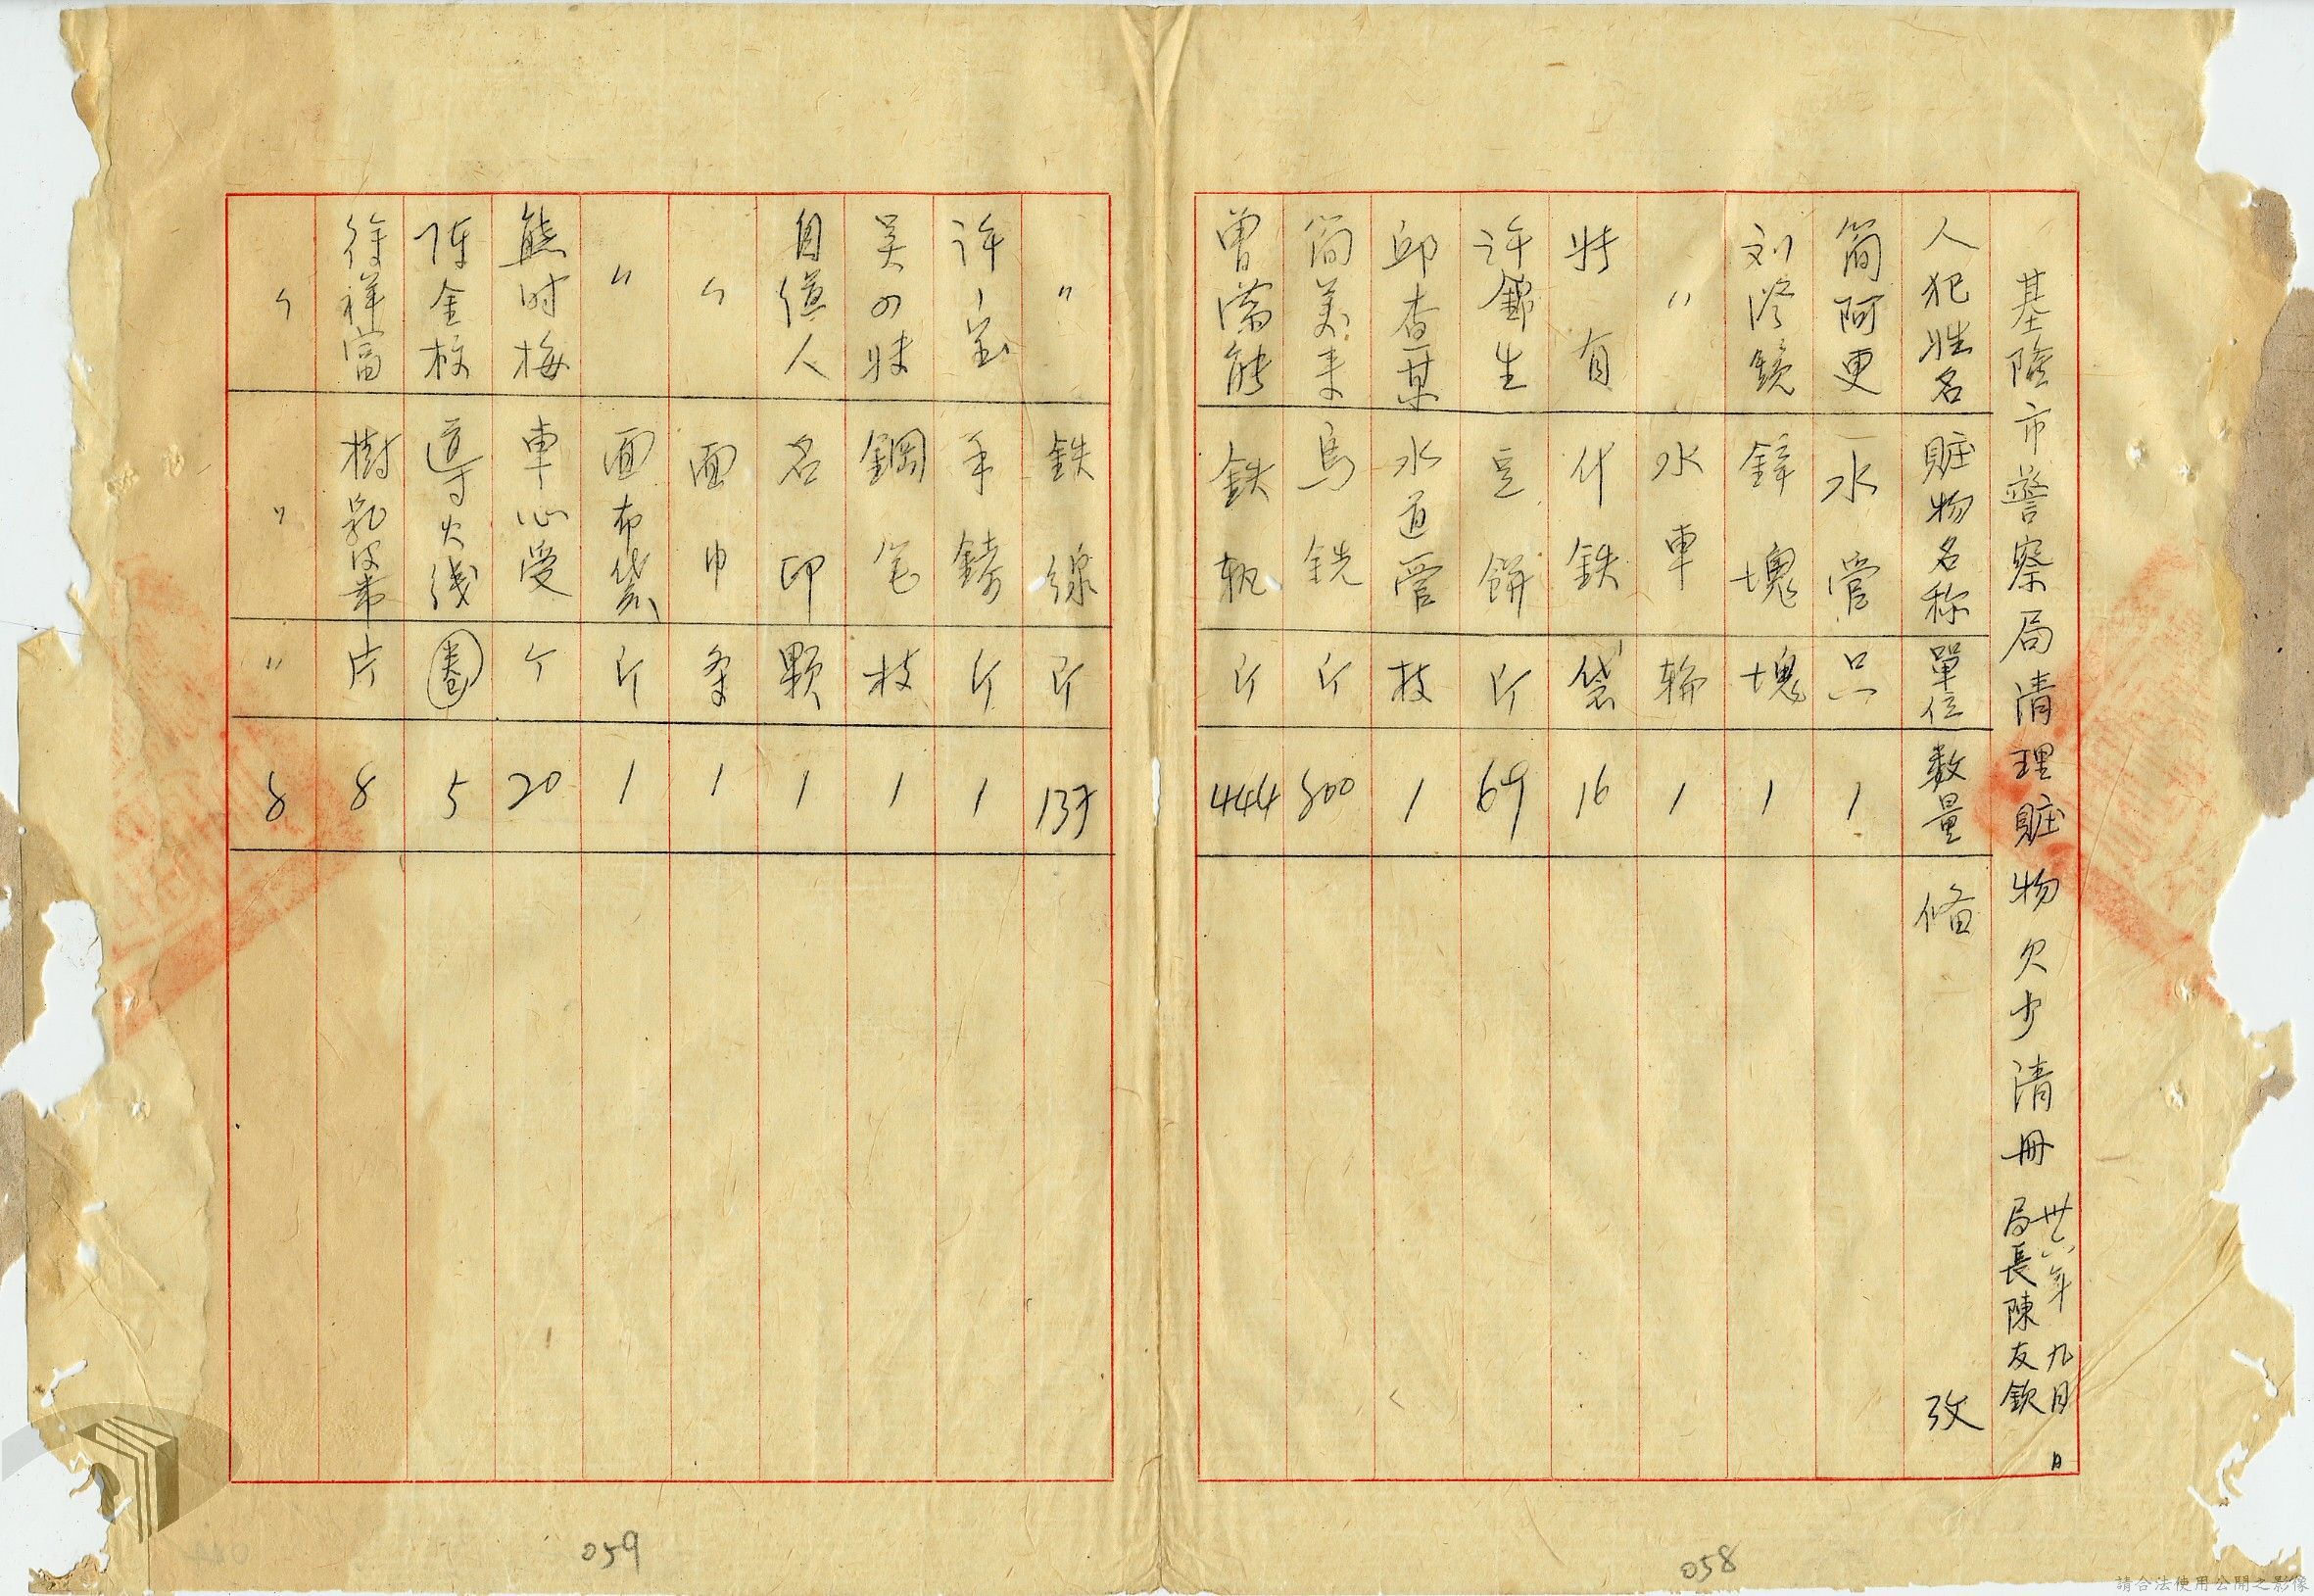 基隆市警察局清理賍物欠少清冊 卅六年 九月 日
局長陳友欽
人犯姓名 賍物名称 單位 数量 俻 攷
簡阿更 水管 只 1
刘 鏡 鋅塊 塊 1
〃 水車 輪 1
有 什鉄 袋 16
許錦生 豆餅 斤 69
邱查某 水道管 枝 1
簡美来 烏銑 斤 800
曾 鉄 斤 444
〃 鉄線 斤 137
許 宝 手錡 斤 1
吳の妹 鋼笔 枝 1
自 人 名印 顆 1
〃 面巾 条 1
〃 面布袋 斤 1
熊时梅 車心受 ケ 20
陈金 導火线 圈 5
徐祥富 樹乳皮帯 片 8
〃 〃 〃 8
059
058
請合法使用公開之影像